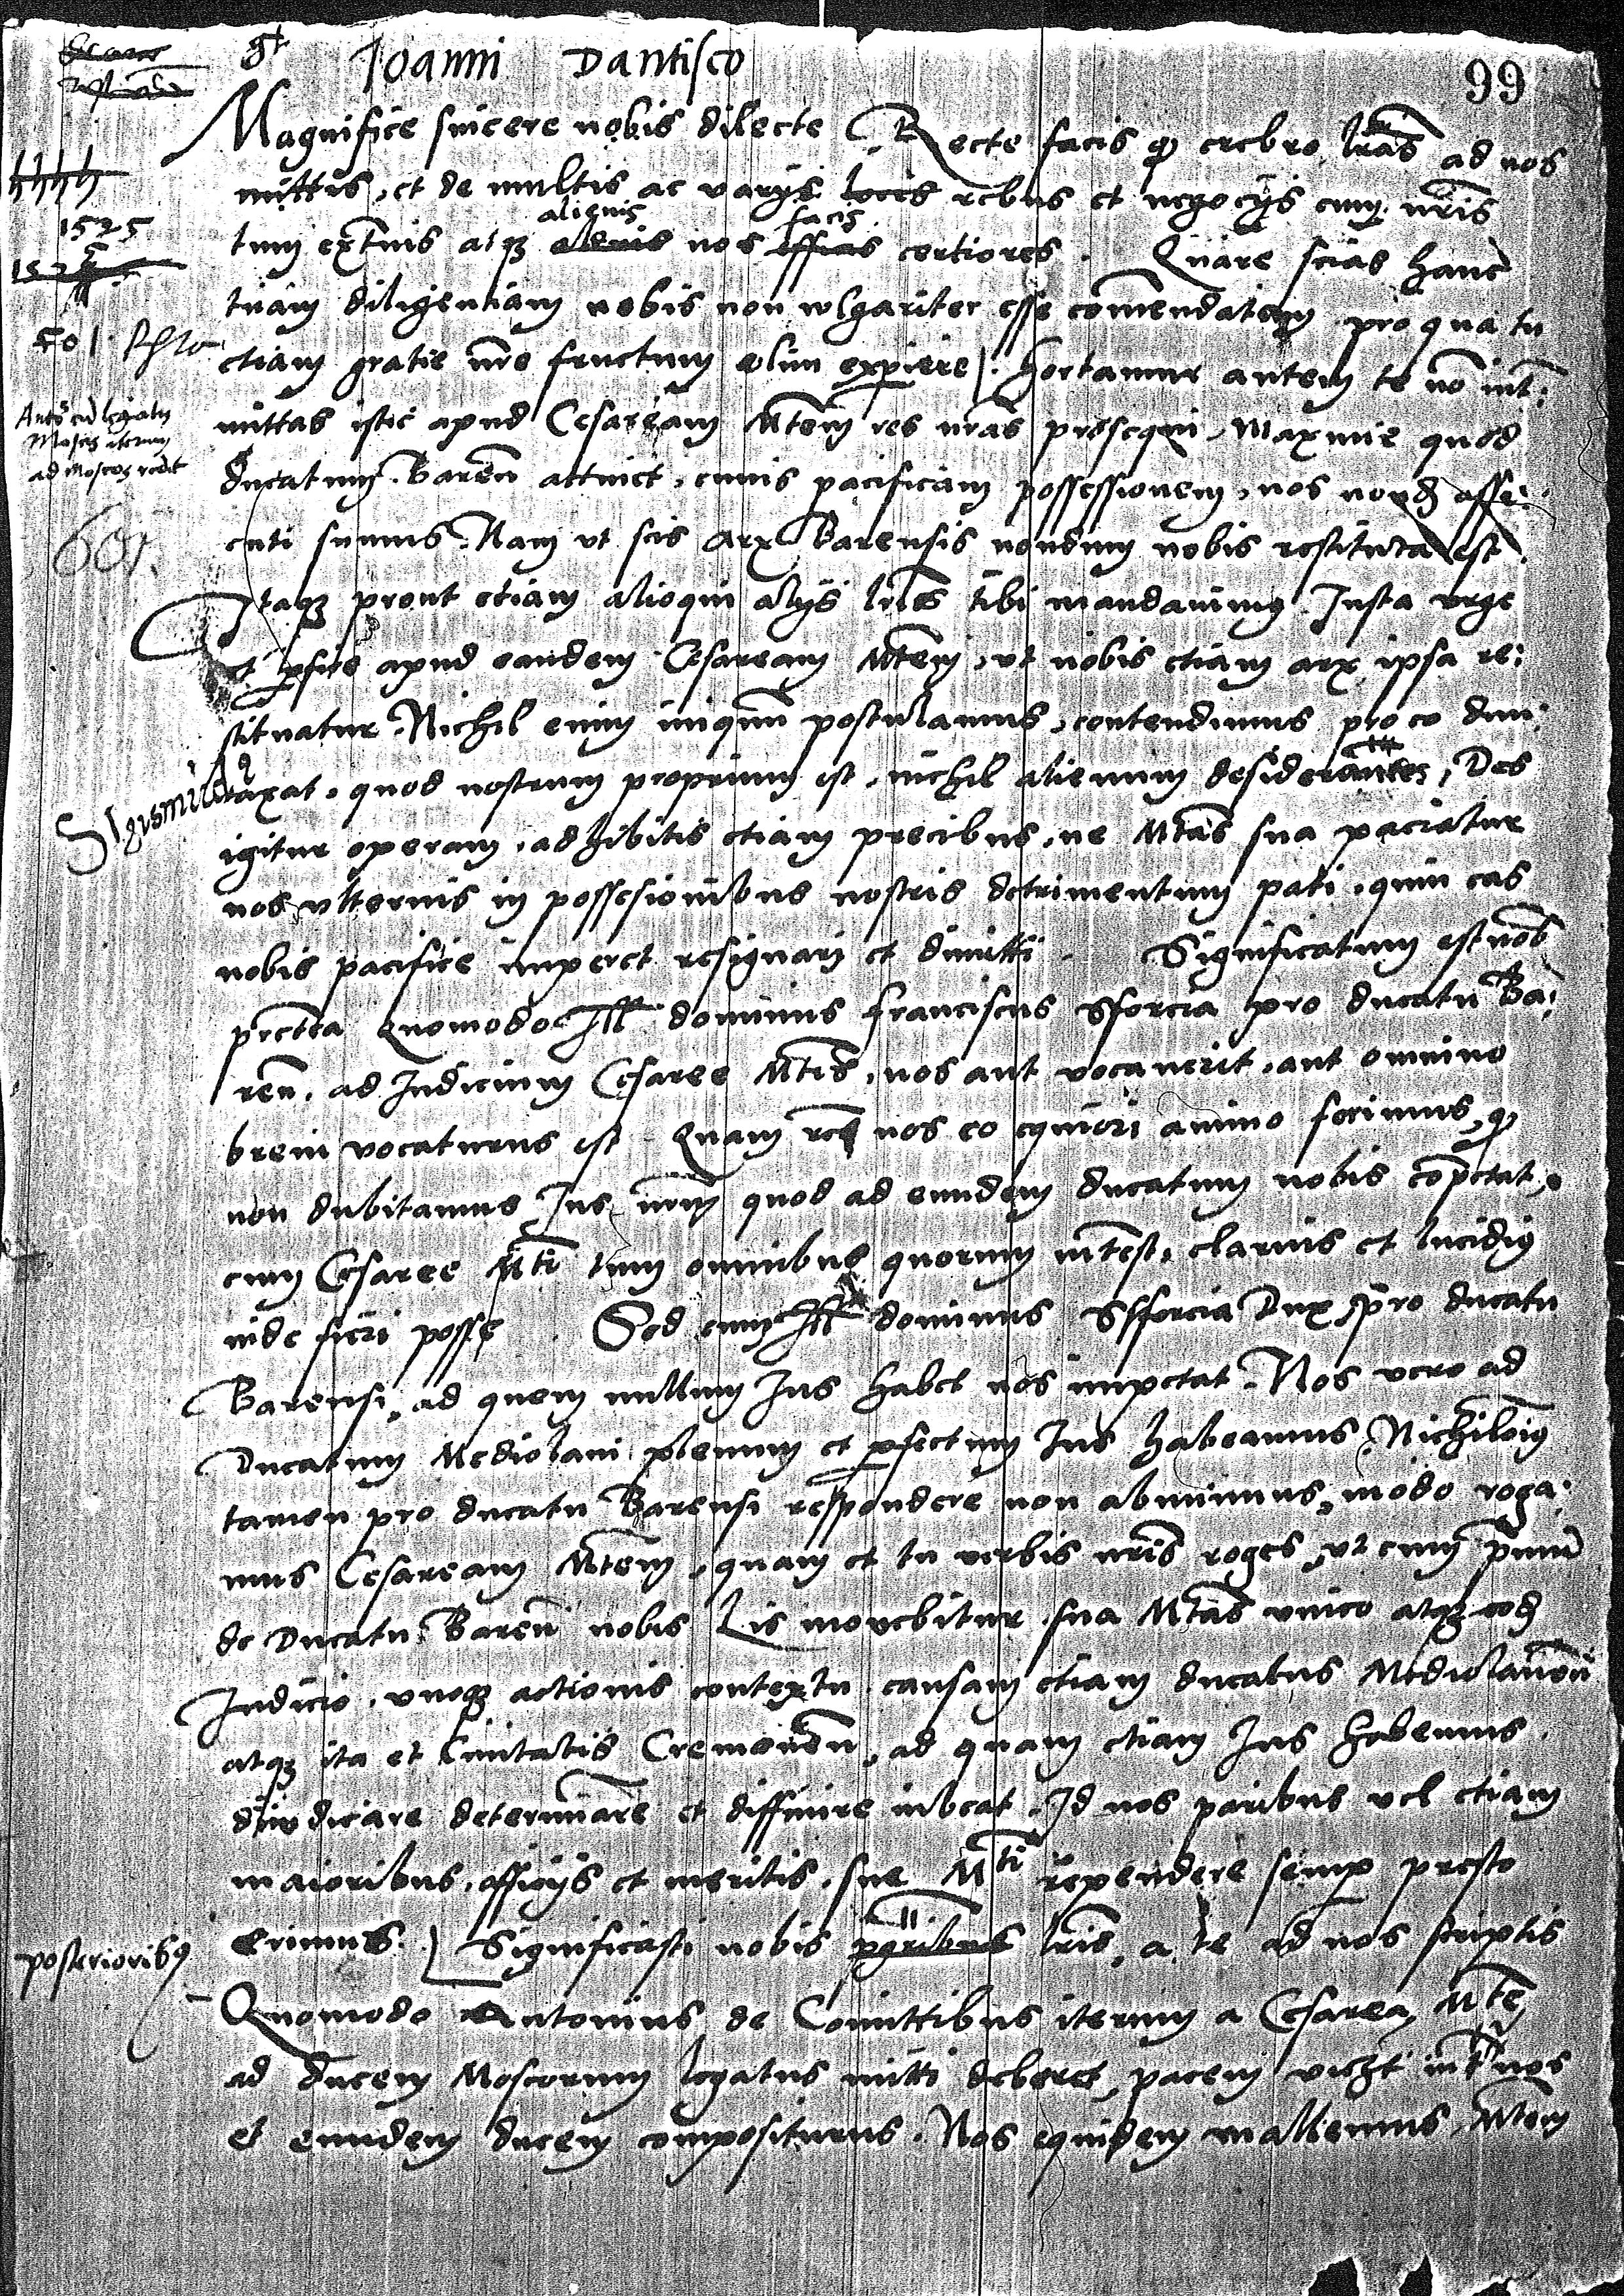 Ioanni Dantisco
99
Magnifice sincere nobis dilecte Recte facis q crebro lras ad nos
mittis, et de multis ac varijs locis rebus et negocijs cum nris
alienis facis
tum externis atq nos efficias certiores. Quare scias hanc
1525
tuam diligentiam nobis non vlgariter esse comendatam pro qua tu
etiam gratie nre fructum olim expiere. Hortamur autem te no int:
mittas istic apud Cesaream Mtem res nras prosequi, Maxime quod
ad Moscos redit
Ducatum Baren attinet, cuius pacificam possessionem, nos nondu asse:
601.
cuti sumus. Nam vt scis Arx Barensis nondum nobis restituta est.
Itaq prout etiam alioqui alijs lris tibi mandauimus Insta vrge
et pfice apud eandem Cesaream Mtem, vt nobis etiam arx ipsa re:
stituatur. Nichil enim iniquum postulamus, contendimus pro eo dun:
Sigismund
taxat, quod nostrum proprium est, nichil alienum desiderantes, Des
igitur operam, adhibitis etiam precibus, ne Mtas sua paciatur
nos vlterius in possesionibus nostris detrimentum pati, quin eas
nobis pacifice imperet resignari et dimitti. Significatum est nob
preterea Quomodo Ill dominus Franciscus Sforcia pro ducatu Ba:
ren. ad Iudicium Cesaree Mtis, nos aut vocauerit, aut omnino
breui vocaturus est Quam rem nos eo equiori animo ferimus, q
non dubitamus Ius nrum quod ad eundem ducatum nobis competat,
cum Cesaree Mti tum omnibus quorum interest, clarius et lucidius
inde fieri posse. Sed cum Ill dominus Sfforcia Dux, pro ducatu
Barensi, ad quem nullum Ius habet nos impetat. Nos vero ad
Ducatum Mediolani plenum et pfectum Ius habeamus, Nichilominus
tamen pro ducatu Barensi respondere non abnuimus, modo roga:
mus Cesaream Mtem, quam et tu verbis nris roges, vt cum primum
de Ducatu Baren nobis Lis mouebitur, sua Mtas vnico atq eod
Iudicio, vnoq actionis contextu, causam etiam ducatus Mediolanen
atq ita et Ciuitatis Cremonen, ad quam etiam Ius habemus,
diiudicare determinare et diffinire iubeat. Id nos paribus vel etiam
maioribus, officijs et meritis, sue Mti rependere semp presto
erimus. Significasti nobis paribus lris, a te ad nos scriptis
posteriorib9
Quomodo Antonius de Comittibus iterum a Cesarea Mte
ad ducem Moscorum legatus mitti deberet, pacem vicz int nos
et eundem ducem compositurus. Nos equidem mallemus, Mtem